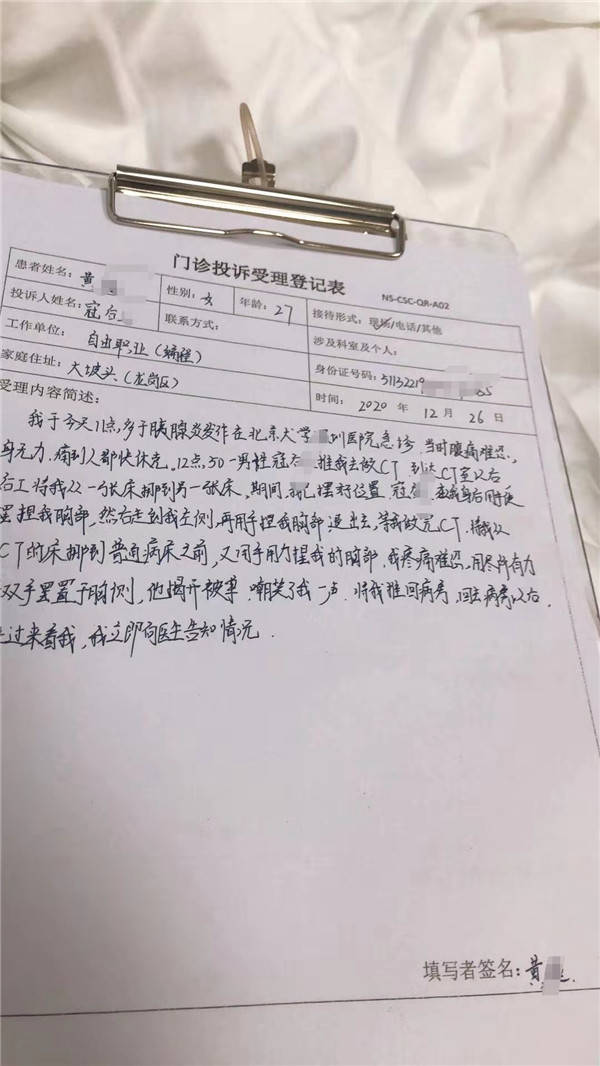 门诊投诉受理登记表 NS-CSC-QR-A02
患者姓名：黄 性别：女 年龄：27 接待形式：现场/电话/其他
投诉人姓名：寇 联系方式： 涉及科室及个人：
工作单位：自由职业 身份证号码：5113221985
家庭住址：大坡头（龙岗区） 时间：2020 年 12 月 26 日
受理内容简述：
我于今天11点，多于胰腺炎发作在北京大学圳医院急诊，当时腹痛难忍，
身无力，痛到人都快休克，12点，50一男性寇推我去做CT，到达CT室以后
右工将我从一张床挪到另一张床，期间，我已摆好位置，寇在我身后用手
捏我胸部，然后走到我左侧，再用手捏我胸部，退出去，等我做完CT，将我从
CT的床挪到普通病床之前，又用手用力捏我的胸部，我疼痛难忍，用尽所有力
双手罩置于胸侧，他揭开被单，嘲笑了我一声，将我推回病房，回去病房以后，
过来看我，我立即向医生告知情况．
填写者签名：黄